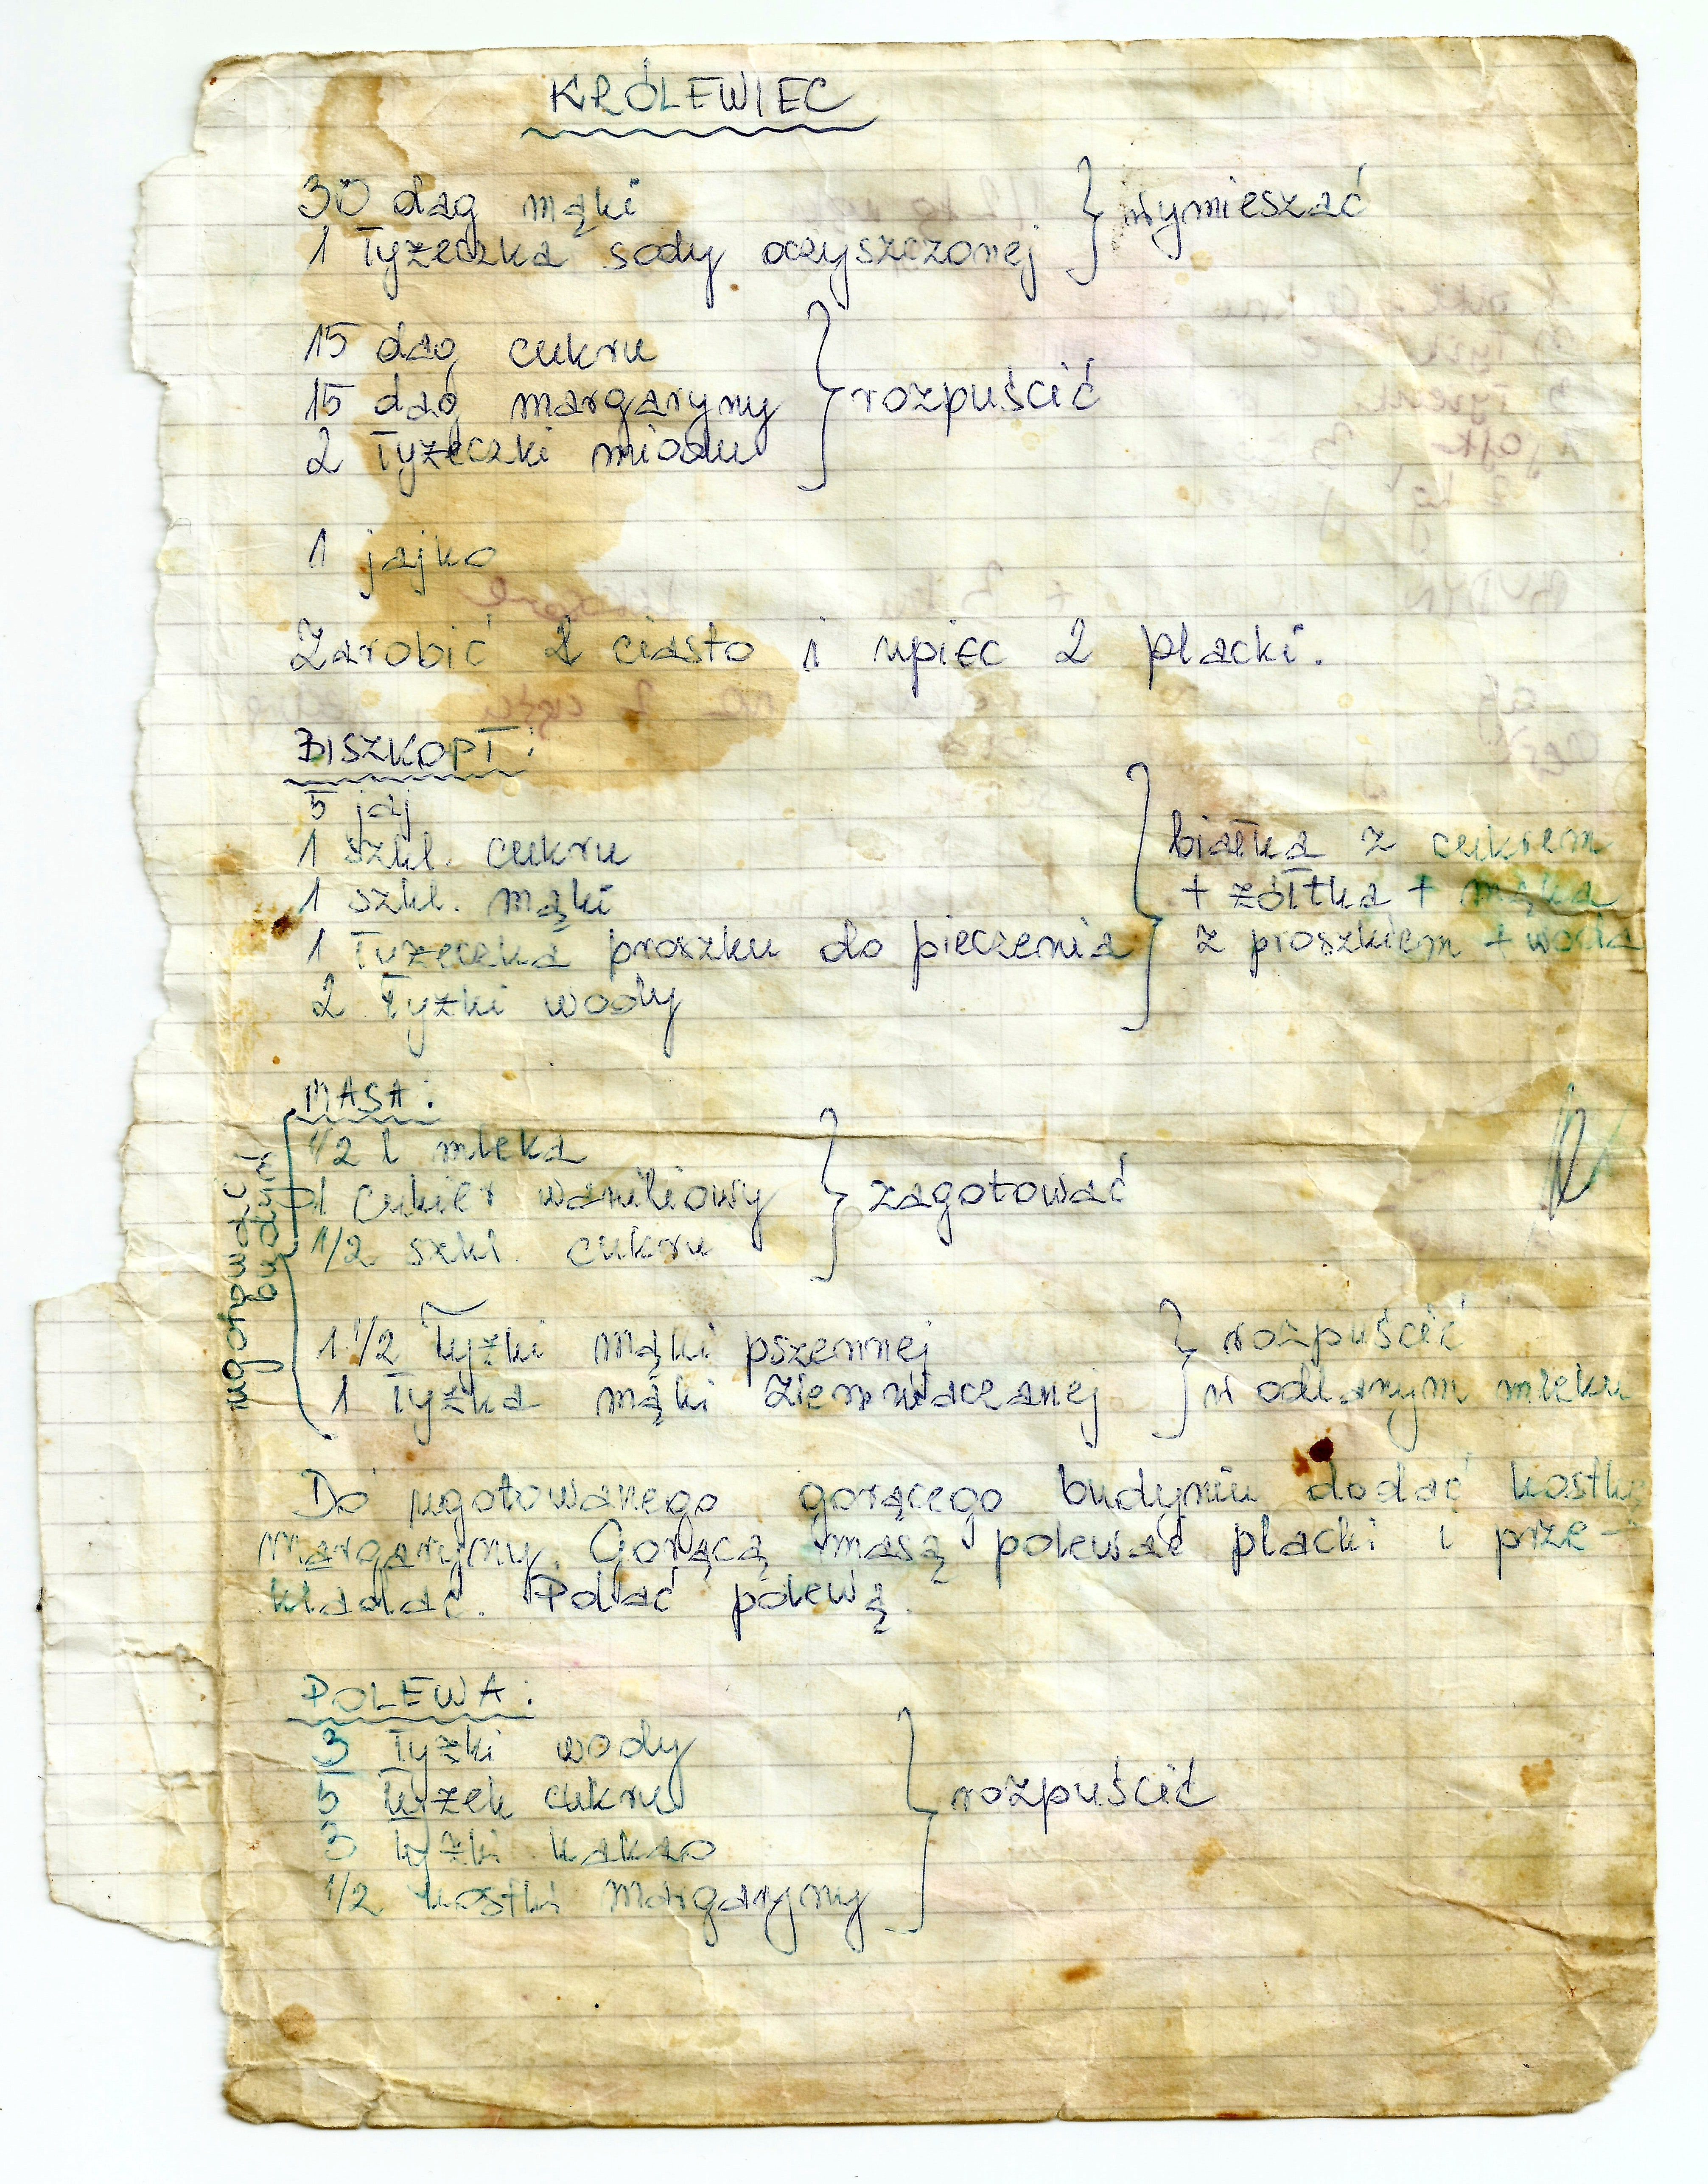 KRÓLEWIEC
30 dag mąki
1 łyżeczka sody oczyszczonej
} wymieszać
15 dag cukru
15 dag margaryny
2 łyżeczki miodu
} rozpuścić
1 jajko
Zarobić ciasto i upiec 2 placki.
BISZKOPT:
5 jaj
1 szkl. cukru
1 szkl. mąki
1 łyżeczka proszku do pieczenia
2 łyżki wody
} białka z cukrem
+ żółtka + mąka
z proszkiem + woda
MASA:
1/2 l mleka
1 cukier waniliowy
1/2 szkl. cukru
} zagotować
1 1/2 łyżki mąki pszennej
1 łyżka mąki ziemniaczanej
} rozpuścić
w odlanym mleku
ugotować
budyń
Do ugotowanego gorącego budyniu dodać kostkę
margaryny. Gorącą masą polewać placki i prze-
kładać. Polać polewą.
POLEWA:
3 łyżki wody
5 łyżek cukru
3 łyżki kakao
1/2 kostki margaryny
} rozpuścić